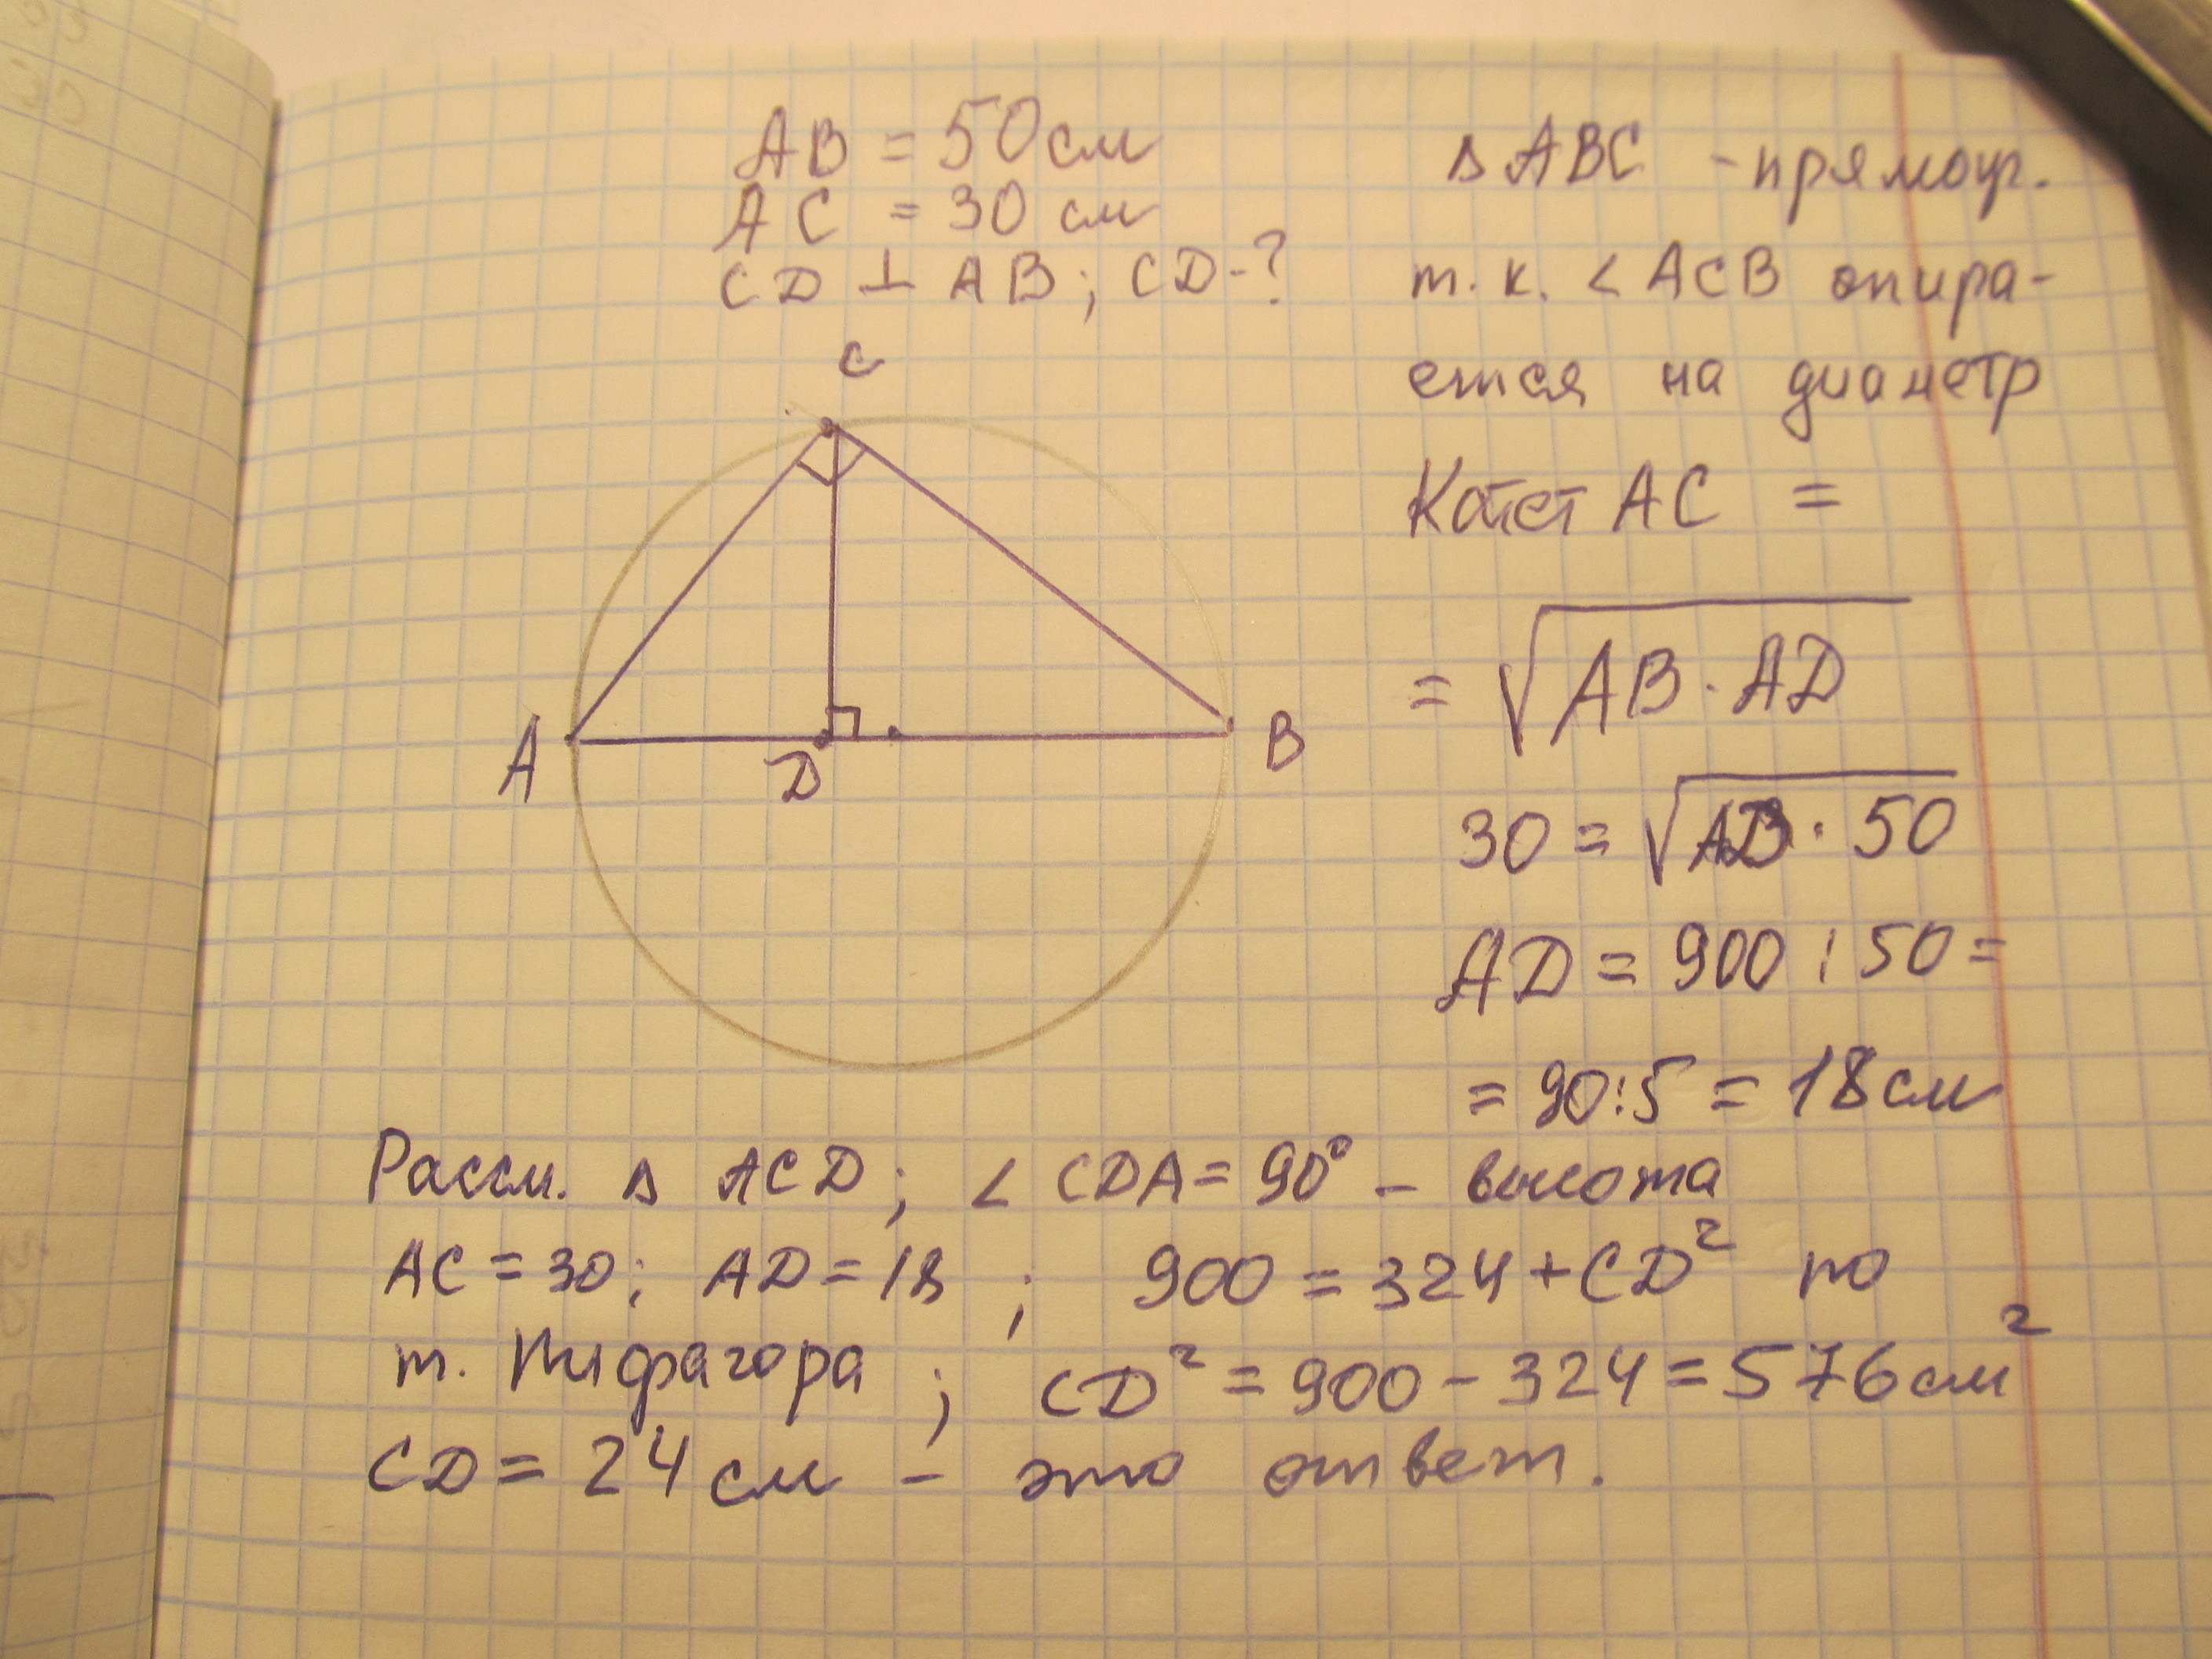 AB = 50 см
AC = 30 см
CD ⊥ AB; CD-?
C
A
D
B
Δ ABC - прямоуг.
т.к. < ACB опира-
ется на диаметр
Катет AC =
= √AB · AD
30 = √AD · 50
AD = 900 : 50 =
= 90:5 = 18 см
Рассм. Δ ACD; < CDA = 90° - высота
AC = 30; AD = 18 ; 900 = 324 + CD² по
т. Пифагора ; CD² = 900 - 324 = 576 см²
CD = 24 см - это ответ.